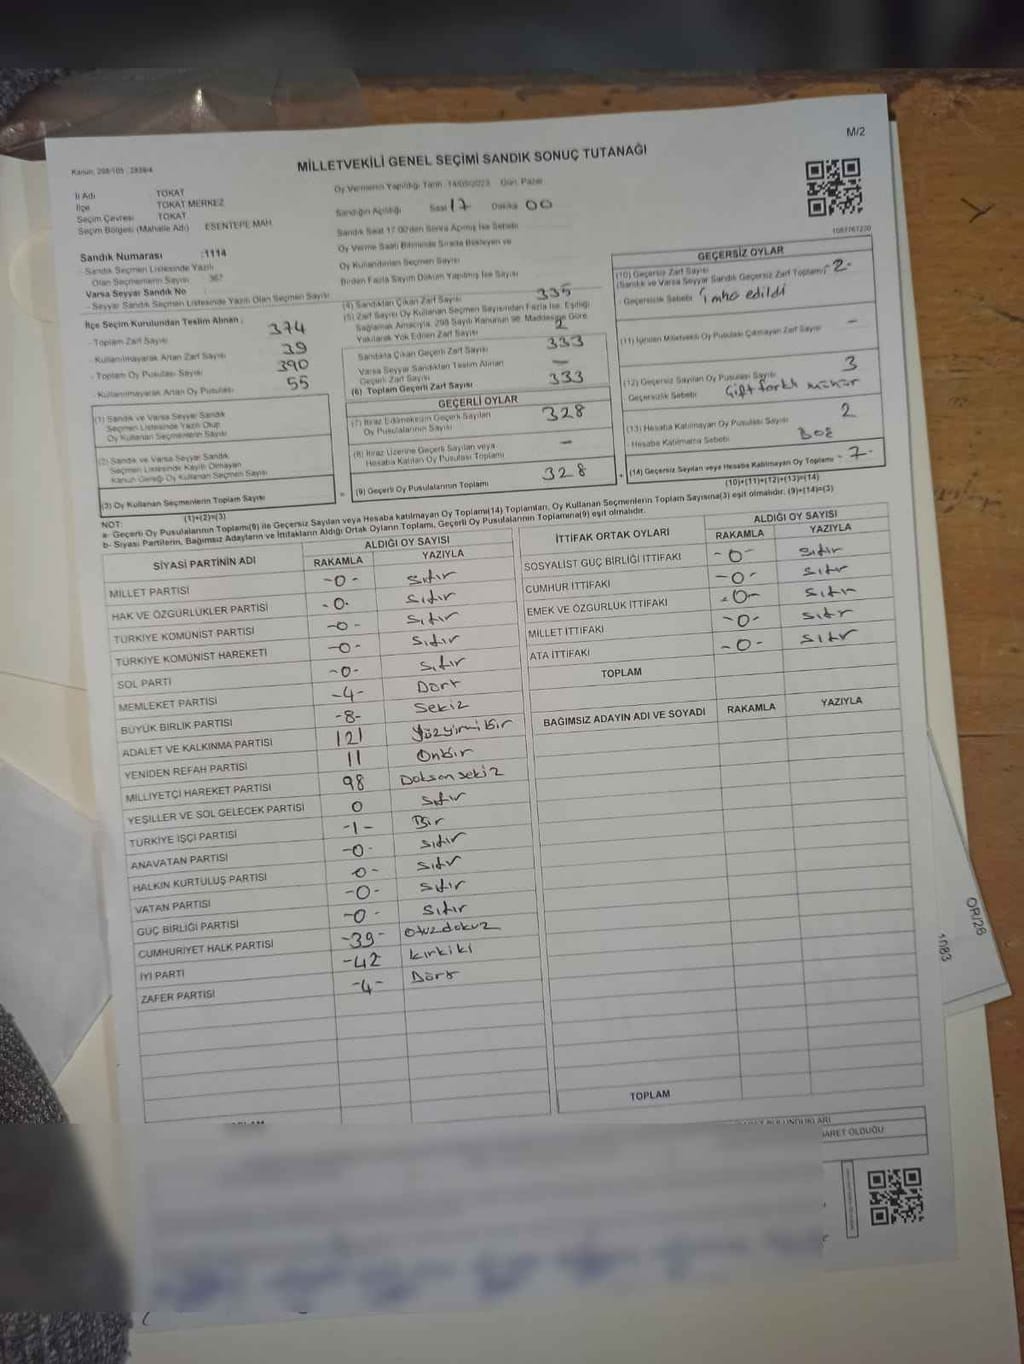 M/2
Kanun: 298/105 : 2839/4
MİLLETVEKİLİ GENEL SEÇİMİ SANDIK SONUÇ TUTANAĞI
İl Adı TOKAT
İlçe TOKAT MERKEZ
Seçim Çevresi TOKAT
Seçim Bölgesi (Mahalle Adı) ESENTEPE MAH
Sandık Numarası :1114
- Sandık Seçmen Listesinde Yazılı
Olan Seçmenlerin Sayısı : 367
Varsa Seyyar Sandık No
- Seyyar Sandık Seçmen Listesinde Yazılı Olan Seçmen Sayısı
İlçe Seçim Kurulundan Teslim Alınan :
- Toplam Zarf Sayısı 374
- Kullanılmayarak Artan Zarf Sayısı 39
- Toplam Oy Pusulası Sayısı 390
- Kullanılmayarak Artan Oy Pusulası 55
(1) Sandık ve Varsa Seyyar Sandık
Seçmen Listesinde Yazılı Olup
Oy Kullanan Seçmenlerin Sayısı
(2) Sandık ve Varsa Seyyar Sandık
Seçmen Listesinde Kayıtlı Olmayan
Kanun Gereği Oy Kullanan Seçmen Sayısı
(3) Oy Kullanan Seçmenlerin Toplam Sayısı
(1)+(2)=(3)
Oy Vermenin Yapıldığı Tarih :14/05/2023 Gün: Pazar
Sandığın Açıldığı Saat 17 Dakika 00
Sandık Saat 17.00'den Sonra Açılmış İse Sebebi
Oy Verme Saati Bitiminde Sırada Bekleyen ve
Oy Kullandırılan Seçmen Sayısı
Birden Fazla Sayım Döküm Yapılmış İse Sayısı
(4) Sandıktan Çıkan Zarf Sayısı 335
(5) Zarf Sayısı Oy Kullanan Seçmen Sayısından Fazla İse, Eşitliği
Sağlamak Amacıyla, 298 Sayılı Kanunun 98. Maddesine Göre
Yakılarak Yok Edilen Zarf Sayısı 2
Sandıkta Çıkan Geçerli Zarf Sayısı 333
Varsa Seyyar Sandıktan Teslim Alınan
Geçerli Zarf Sayısı -
(6) Toplam Geçerli Zarf Sayısı 333
GEÇERLİ OYLAR
(7) İtiraz Edilmeksizin Geçerli Sayılan
Oy Pusulalarının Sayısı 328
(8) İtiraz Üzerine Geçerli Sayılan veya
Hesaba Katılan Oy Pusulası Toplamı -
= (9) Geçerli Oy Pusulalarının Toplamı 328
1087767230
GEÇERSİZ OYLAR
(10) Geçersiz Zarf Sayısı
(Sandık ve Varsa Seyyar Sandık Geçersiz Zarf Toplamı) -2-
- Geçersizlik Sebebi imha edildi
(11) İçinden Milletvekili Oy Pusulası Çıkmayan Zarf Sayısı -
(12) Geçersiz Sayılan Oy Pusulası Sayısı 3
- Geçersizlik Sebebi Çift farklı mühür
(13) Hesaba Katılmayan Oy Pusulası Sayısı 2
- Hesaba Katılmama Sebebi Boş
+ (14) Geçersiz Sayılan veya Hesaba Katılmayan Oy Toplamı -7-
(10)+(11)+(12)+(13)=(14)
NOT:
a- Geçerli Oy Pusulalarının Toplamı(9) ile Geçersiz Sayılan veya Hesaba katılmayan Oy Toplamı(14) Toplamları, Oy Kullanan Seçmenlerin Toplam Sayısına(3) eşit olmalıdır. (9)+(14)=(3)
b- Siyasi Partilerin, Bağımsız Adayların ve İttifakların Aldığı Ortak Oyların Toplamı, Geçerli Oy Pusulalarının Toplamına(9) eşit olmalıdır.
SİYASİ PARTİNİN ADI ALDIĞI OY SAYISI
RAKAMLA YAZIYLA
MİLLET PARTİSİ -0- sıfır
HAK VE ÖZGÜRLÜKLER PARTİSİ -0- sıfır
TÜRKİYE KOMÜNİST PARTİSİ -0- sıfır
TÜRKİYE KOMÜNİST HAREKETİ -0- sıfır
SOL PARTİ -0- sıfır
MEMLEKET PARTİSİ -4- Dört
BÜYÜK BİRLİK PARTİSİ -8- Sekiz
ADALET VE KALKINMA PARTİSİ 121 Yüzyirmibir
YENİDEN REFAH PARTİSİ 11 Onbir
MİLLİYETÇİ HAREKET PARTİSİ 98 Doksansekiz
YEŞİLLER VE SOL GELECEK PARTİSİ 0 sıfır
TÜRKİYE İŞÇİ PARTİSİ -1- Bir
ANAVATAN PARTİSİ -0- sıfır
HALKIN KURTULUŞ PARTİSİ -0- sıfır
VATAN PARTİSİ -0- sıfır
GÜÇ BİRLİĞİ PARTİSİ -0- sıfır
CUMHURİYET HALK PARTİSİ -39- otuzdokuz
İYİ PARTİ -42 kırkiki
ZAFER PARTİSİ -4- Dört
İTTİFAK ORTAK OYLARI ALDIĞI OY SAYISI
RAKAMLA YAZIYLA
SOSYALİST GÜÇ BİRLİĞİ İTTİFAKI -0- sıfır
CUMHUR İTTİFAKI -0- sıfır
EMEK VE ÖZGÜRLÜK İTTİFAKI -0- sıfır
MİLLET İTTİFAKI -0- sıfır
ATA İTTİFAKI -0- sıfır
TOPLAM
BAĞIMSIZ ADAYIN ADI VE SOYADI RAKAMLA YAZIYLA
TOPLAM
OR/26
1083